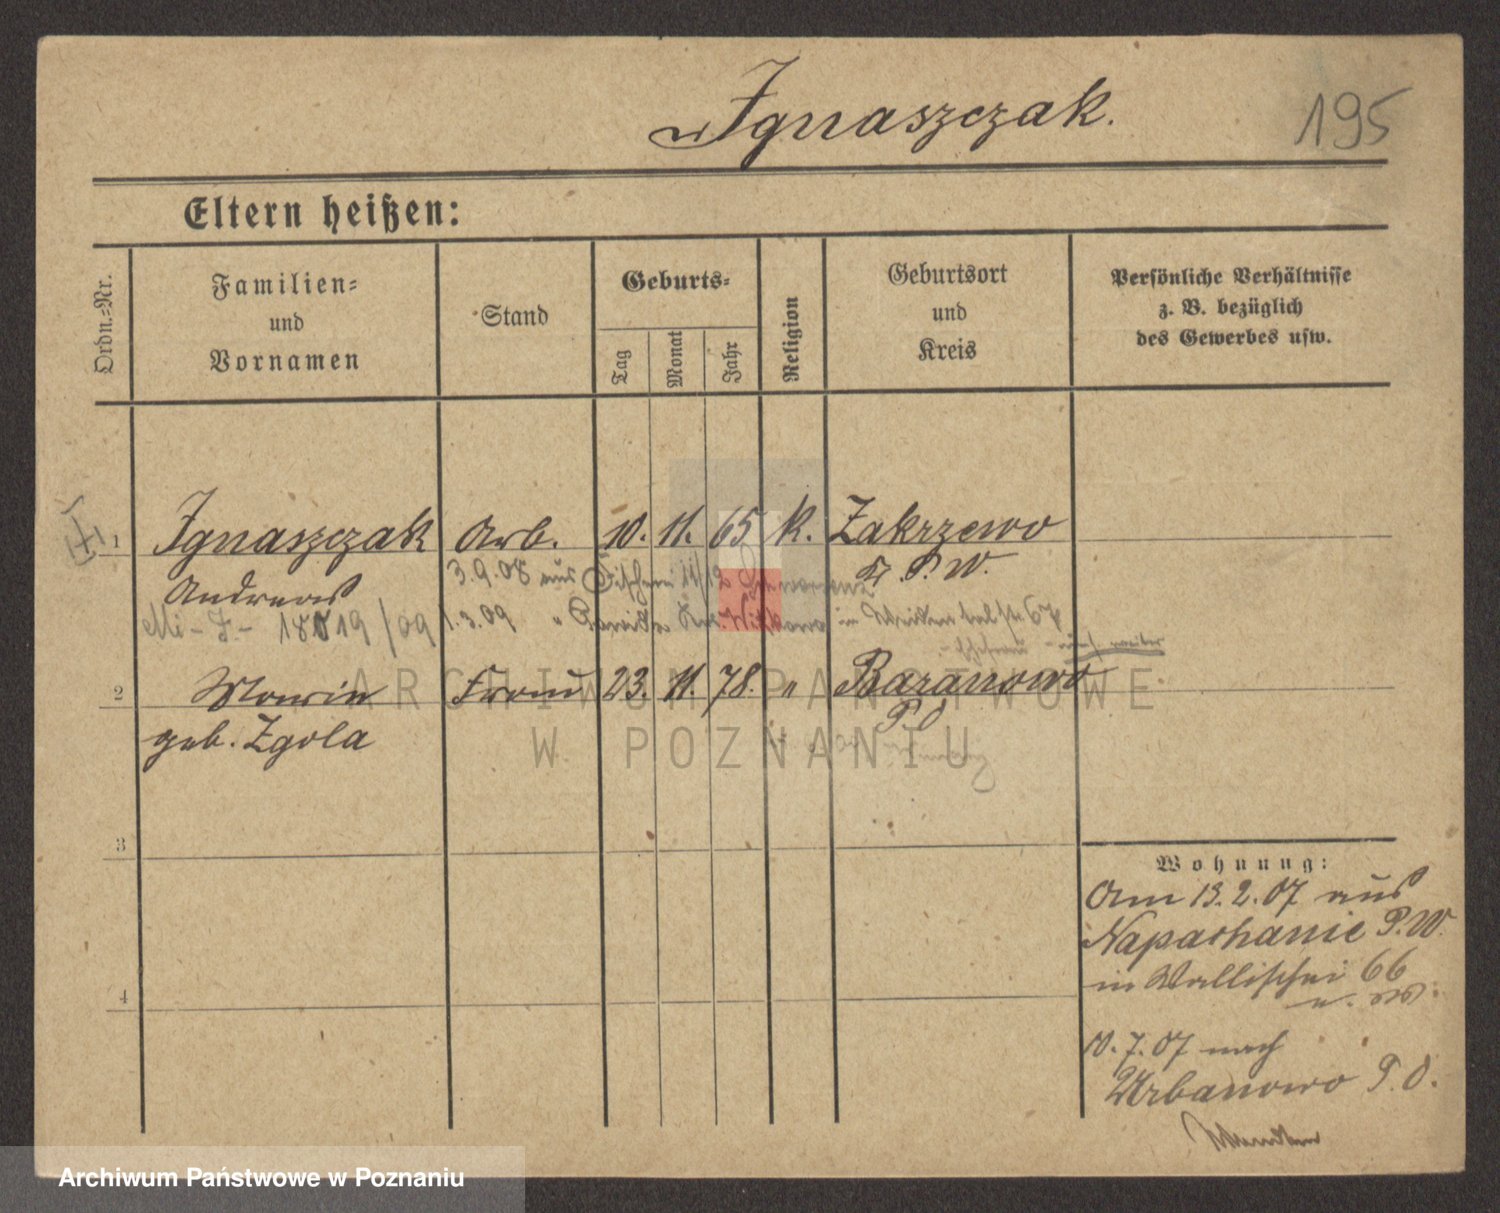 Ignaszczak.
195
Eltern heißen:
Ordn.=Nr.
Familien=
und
Vornamen
Stand
Geburts=
Tag
Monat
Jahr
Religion
Geburtsort
und
Kreis
Persönliche Verhältnisse
z. B. bezüglich
des Gewerbes usw.
1 Ignaszczak Arb. 10. 11. 65 k. Zakrzewo
Andreas
P. W.
3.9.08 aus
1.3.09 "
2 Maria Frau 23. 11. 78. " Baranowo
geb. Zgola
P. O
3
4
Wohnung:
Am 13.2.07 aus
Napachanie P.W.
in Wallischei 66
10.7.07 nach
Urbanowo P.O.
ARCHIWUM PAŃSTWOWE
W POZNANIU
Archiwum Państwowe w Poznaniu